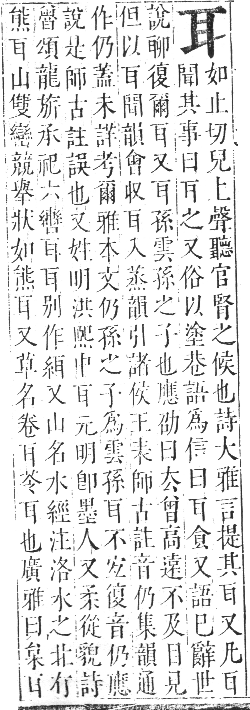 耳
如止切兒上聲聽官腎之候也詩大雅言提其耳又凡耳
聞其事曰耳之又俗以塗巷語爲信曰耳食又語巳辭世
說聊復爾耳又耳孫雲孫之子也應劭曰厺曾高遠不及目見
但以耳聞韻會收耳入蒸韻引諸侯王表師古註音仍集韻通
作仍蓋未詳考爾雅本文仍孫之子爲雲孫耳不宐復音仍應
說是師古註誤也又姓明洪熈中耳元明卽墨人又柔從貌詩
魯頌龍旂承祀六轡耳耳別作緝又山名水經注洛水之北有
熊耳山雙巒競舉狀如熊耳又草名卷耳苓耳也廣雅曰枲耳